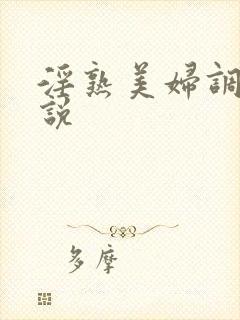 淫熟美婦調
說
多摩